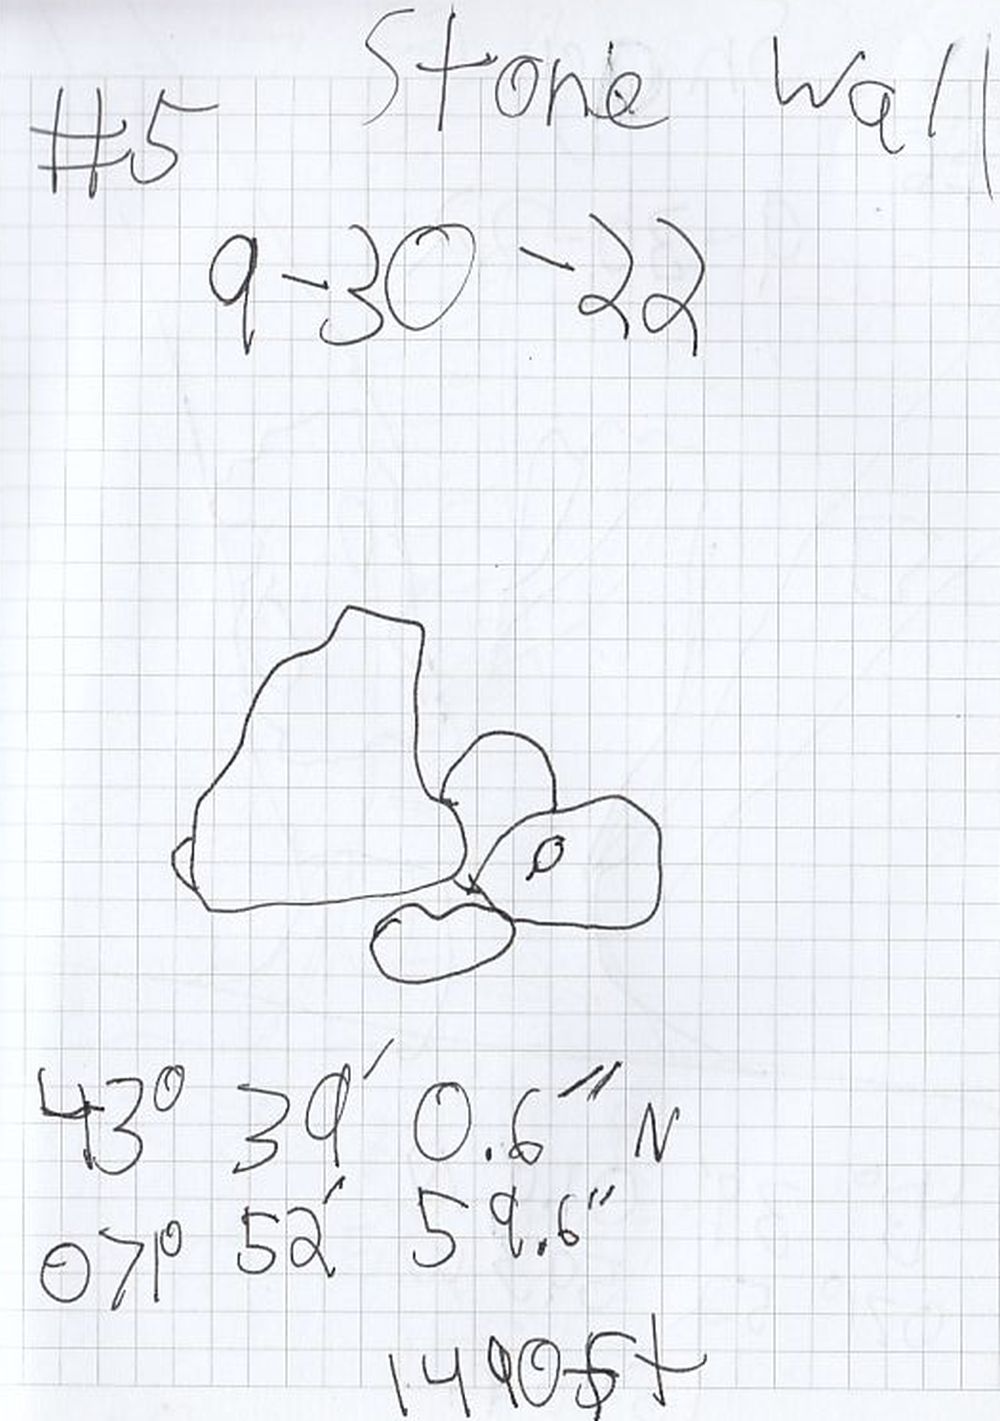 Stone Wall
#5
9-30-22
43° 39' 0.6" N
071° 52' 59.6"
1490 ft